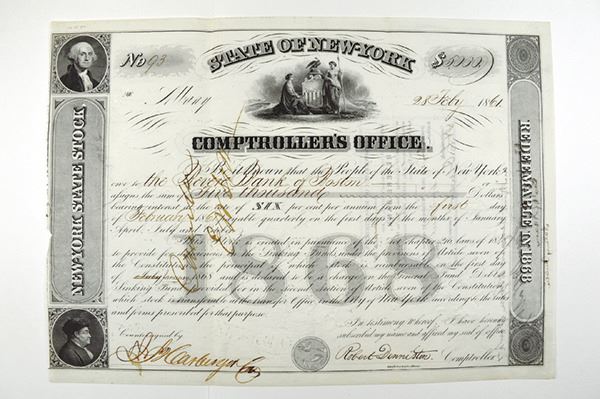 STATE OF NEW-YORK
No 93
$5000
Albany
28 Feby 1861
COMPTROLLER'S OFFICE.
NEW-YORK STATE STOCK
REDEEMABLE IN 1868
Be it known that the People of the State of New York
owe to the Revere Bank of Boston
or assigns the sum of Five Thousand Dollars
bearing interest at the rate of SIX per cent per annum from the first day
of February 1861 payable quarterly on the first days of the months of January
April, July and
This debt is created in pursuance of the Act chapter laws of
to provide for deficiencies in the Sinking Funds under the provisions of Article seven of
the Constitution the principal of which stock is reimbursable on the first day
of 1868 and is declared to be a charge on the General Fund Debt
Sinking Fund provided for in the second Section of Article seven of the Constitution,
which stock is transferable at the transfer Office in the City of New York according to the rules
and forms prescribed for that purpose.
1868
Countersigned by
In testimony whereof, I have hereunto
subscribed my name and affixed my seal of office.
Robert Denniston Comptroller